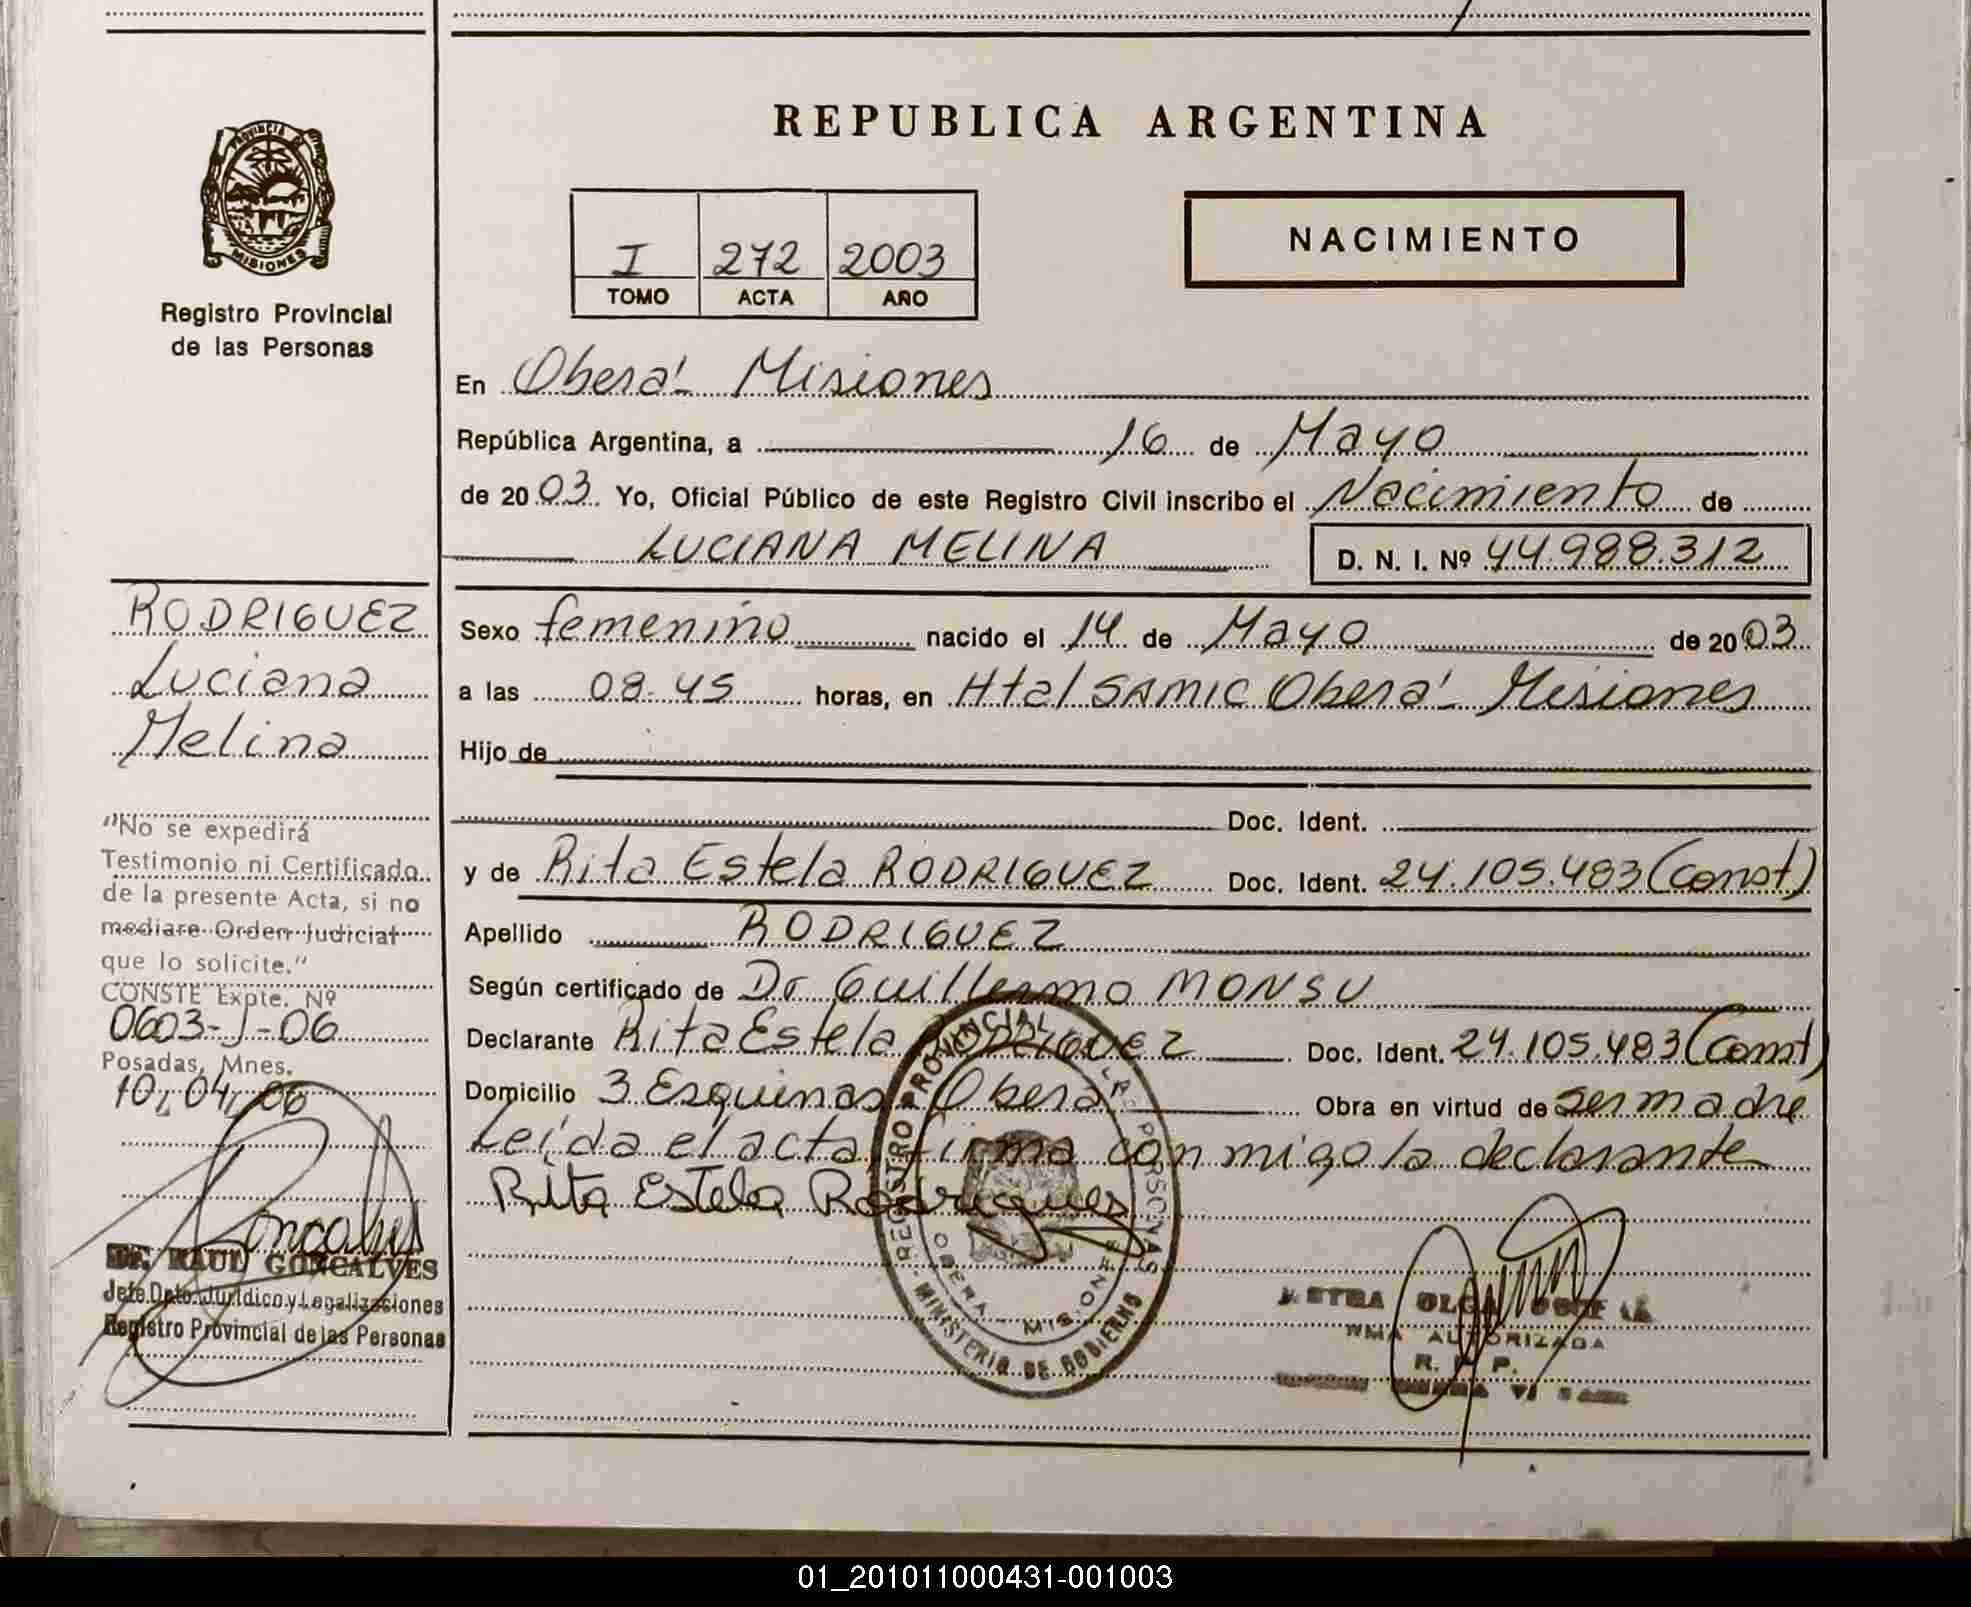 REPUBLICA ARGENTINA
PROVINCIA D
MISIONES
Registro Provincial
de las Personas
I 272 2003
TOMO ACTA AÑO
NACIMIENTO
En Oberá Misiones
República Argentina, a 16 de Mayo
de 2003 Yo, Oficial Público de este Registro Civil inscribo el Nacimiento de
LUCIANA MELINA D. N. I. Nº 44.988.312
Sexo femenino nacido el 14 de Mayo de 2003
a las 08-45 horas, en Htal SAMIC Oberá Misiones
Hijo de
Doc. Ident.
y de Rita Estela RODRIGUEZ Doc. Ident. 24.105.483 (Const)
Apellido RODRIGUEZ
Según certificado de Dr Guillermo MONSU
Declarante Rita Estela RODRIGUEZ Doc. Ident. 24.105.483 (Const)
Domicilio 3 Esquinas Oberá Obra en virtud de ser madre
Leída el acta, firma conmigo la declarante
Rita Estela Rodrigues
RODRIGUEZ
Luciana
Melina
"No se expedirá
Testimonio ni Certificado
de la presente Acta, si no
mediare Orden Judicial
que lo solicite."
CONSTE Expte. Nº
0603-J-06
Posadas, Mnes.
10, 04, 06
Dr. RAUL GONCALVES
Jefe Dpto. Jurídico y Legalizaciones
Registro Provincial de las Personas
REGISTRO PROVINCIAL DE LAS PERSONAS
OBERA MISIONES
MINISTERIO DE GOBIERNO
OLGA
AUTORIZADA
R. P.
01_201011000431-001003